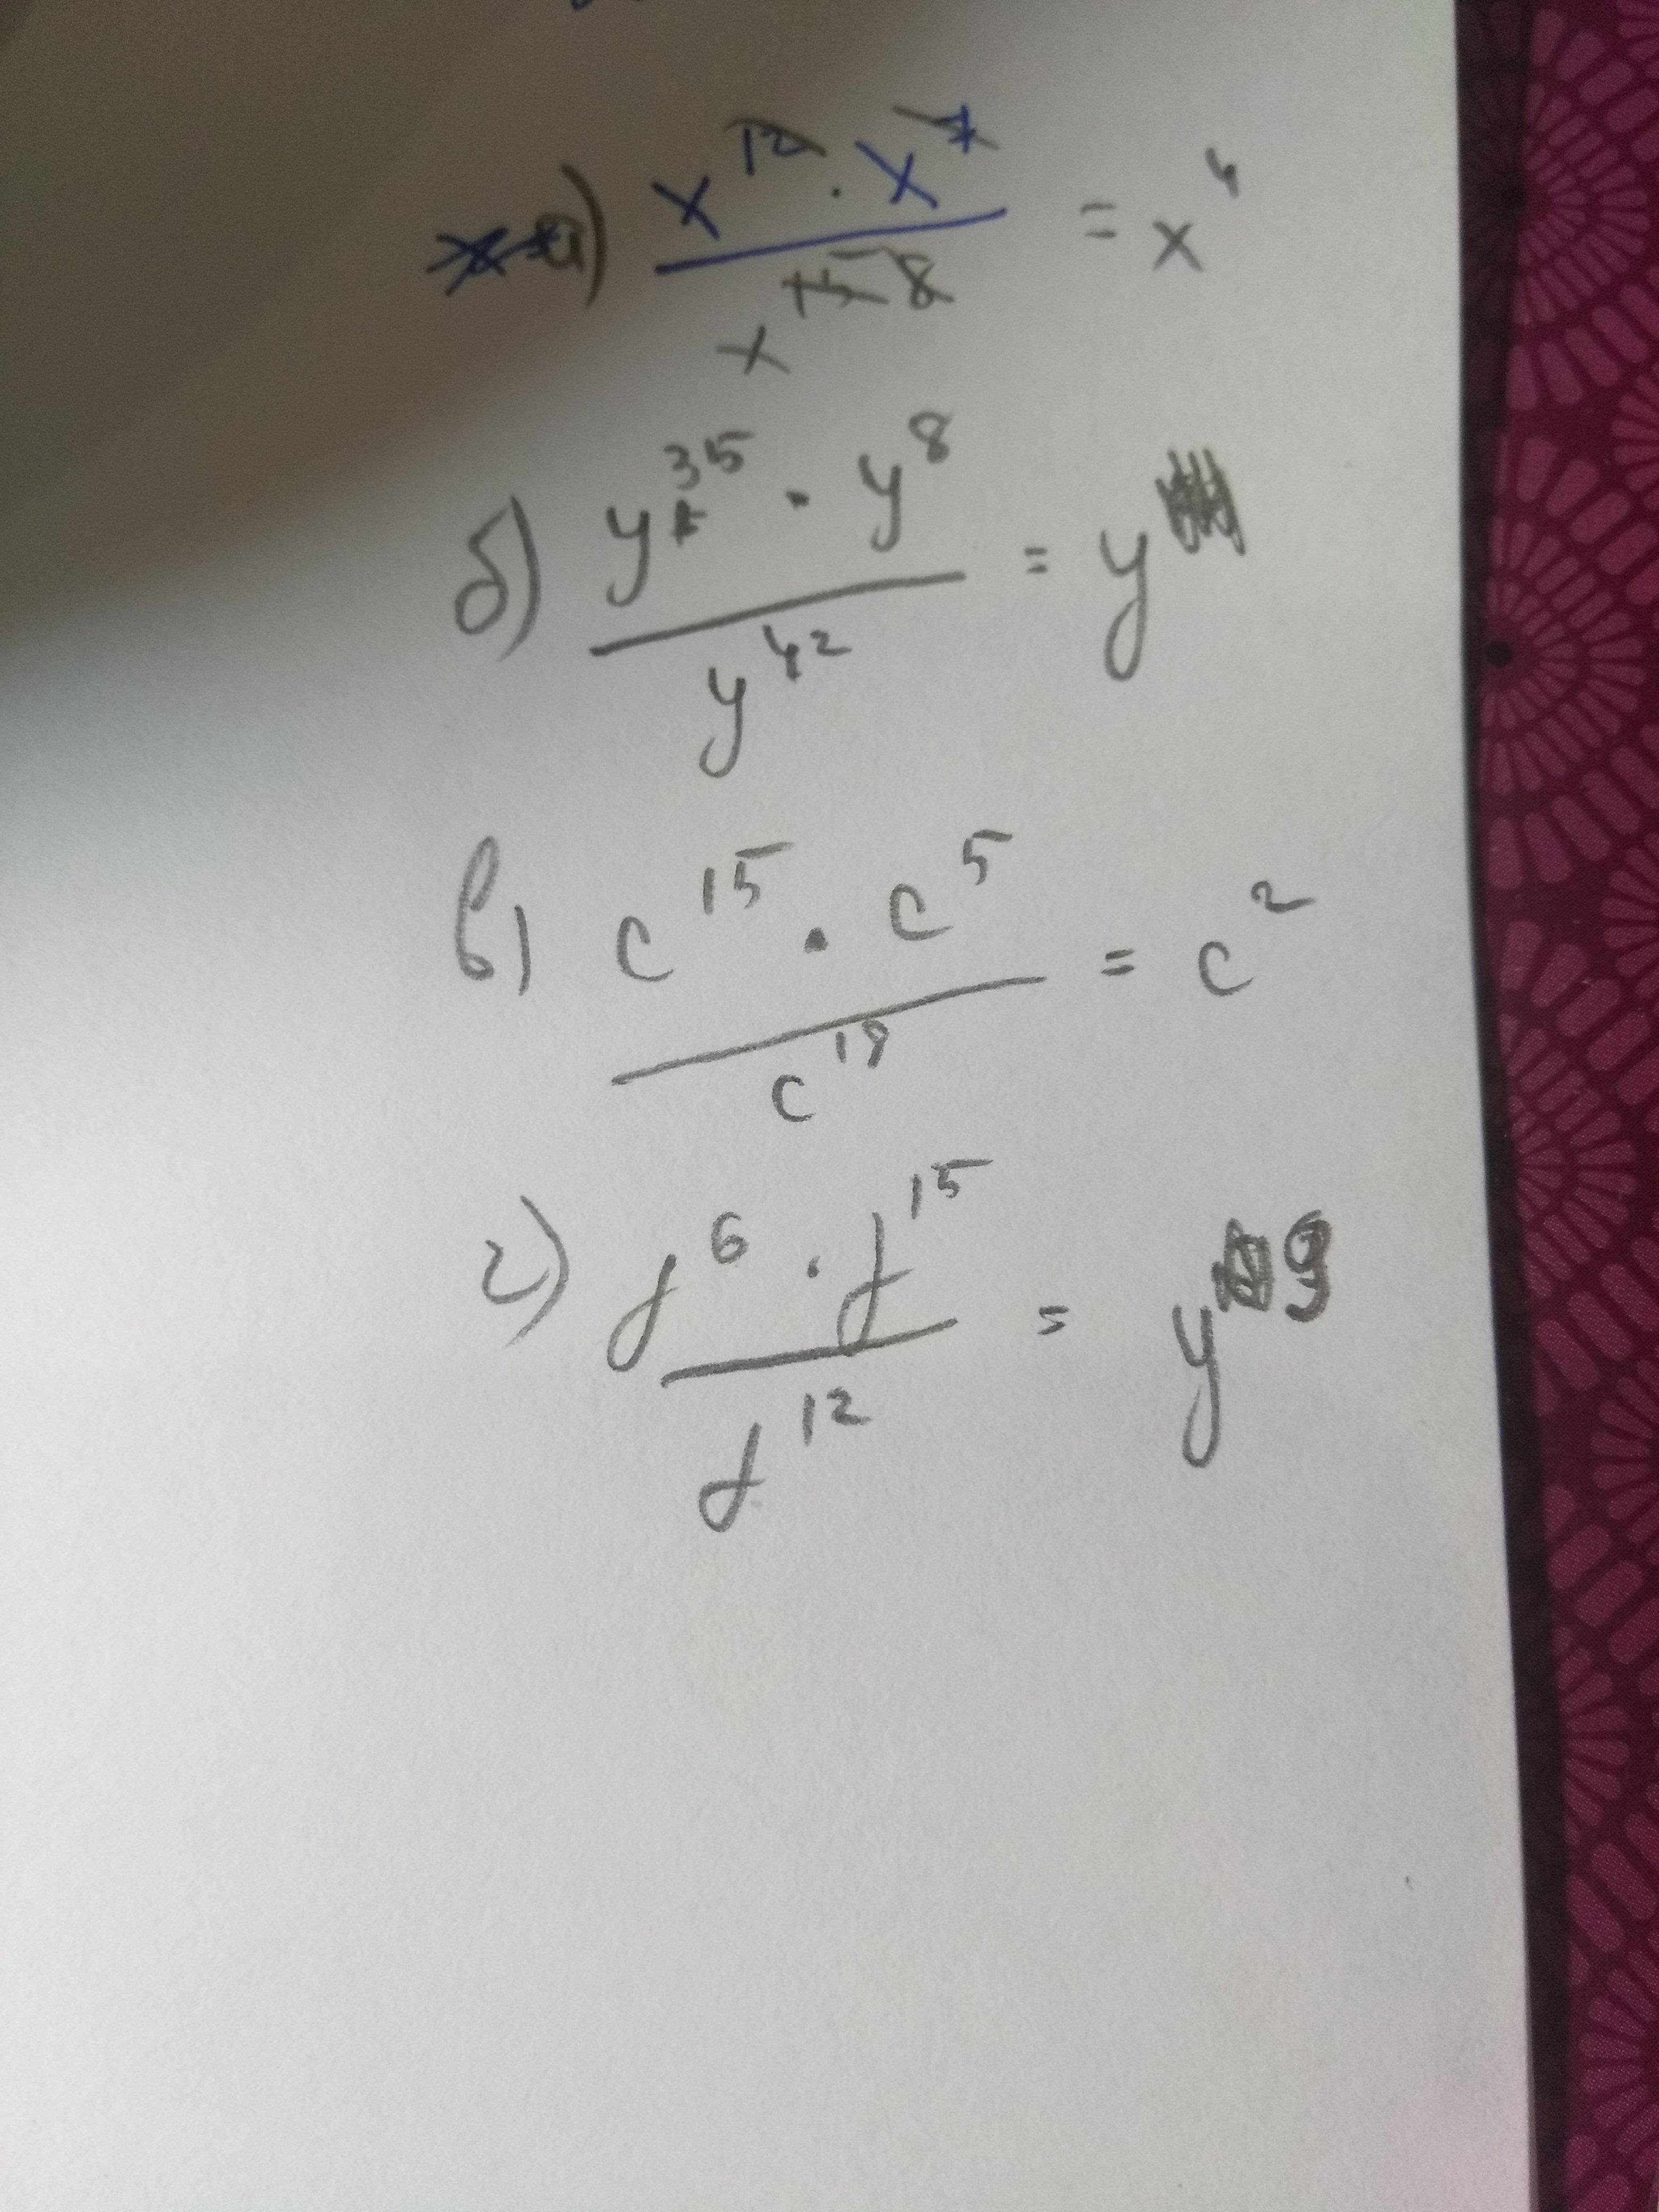 а) x¹² · x⁷ / x¹⁵ ⁸ = x⁴
б) y³⁵ · y⁸ / y⁴² = y
в) c¹⁵ · c⁵ / c¹⁸ = c²
г) y⁶ · y¹⁵ / y¹² = y⁹